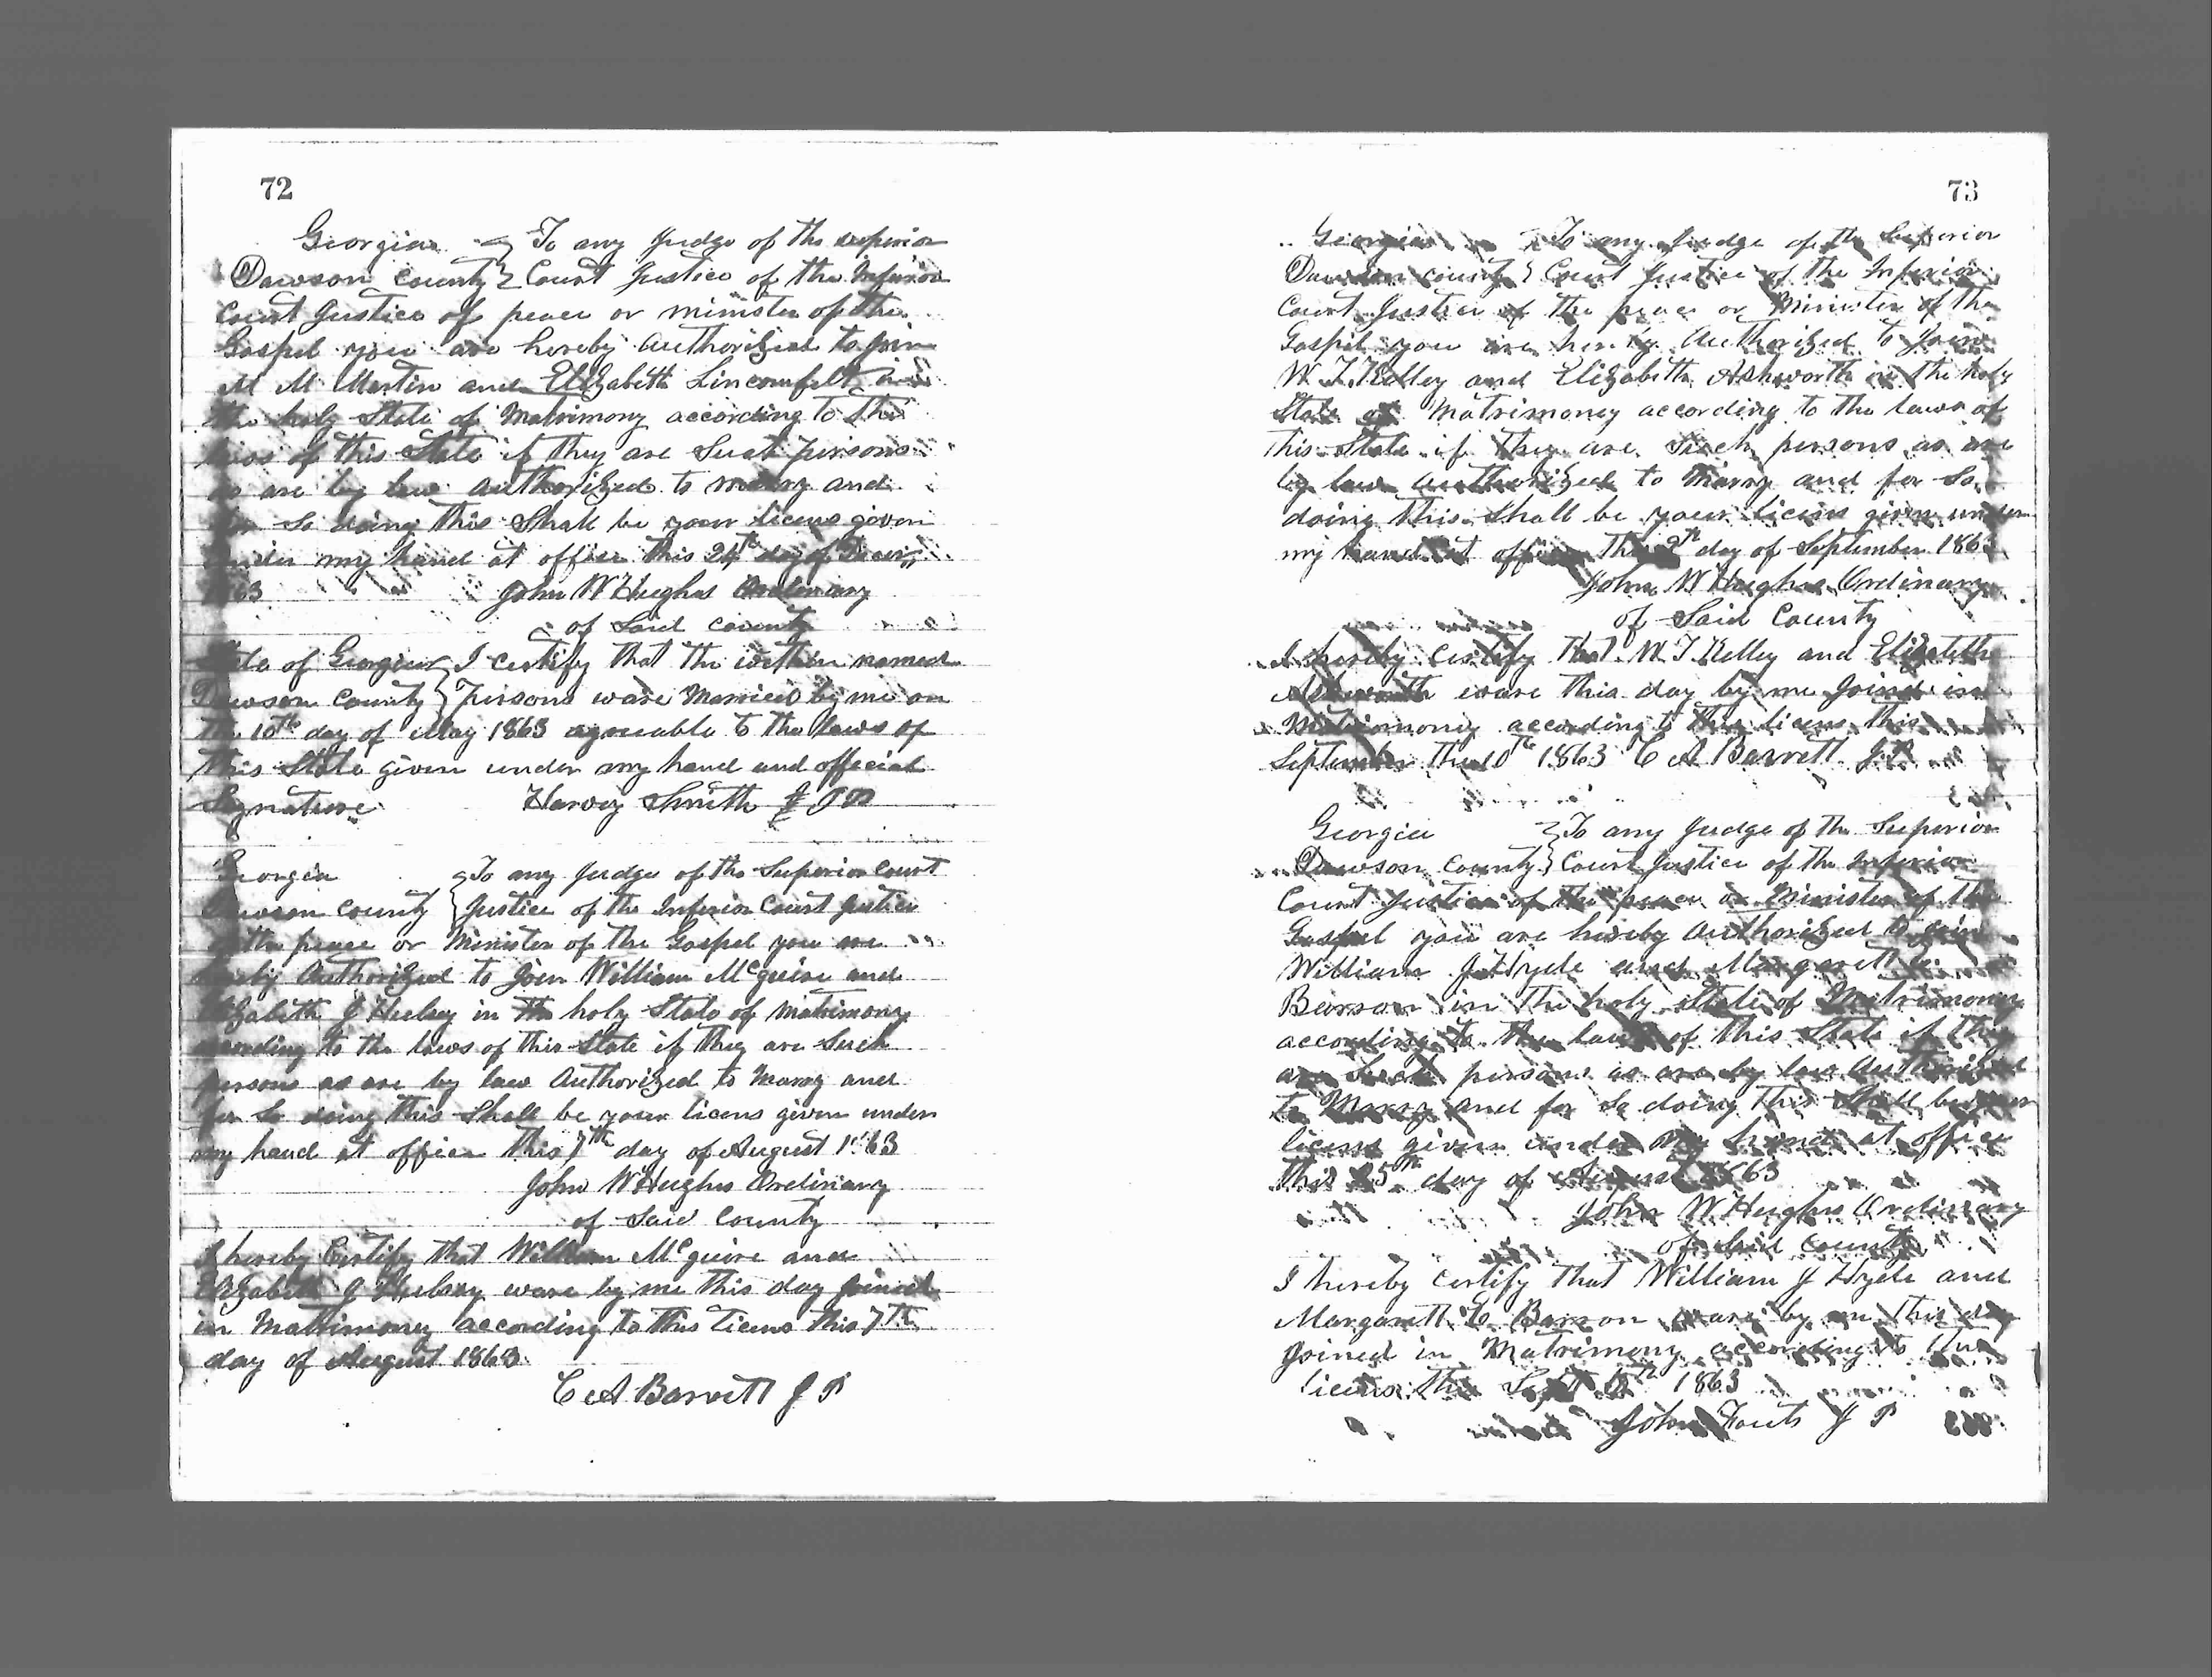 72
Georgia } To any Judge of the superior
Dawson County } Court Justice of the Inferior
Court Justice of peace or minister of the
Gospel you are hereby Authorized to join
M M Martin and Elizabeth Lincomfelt in
the holy State of Matrimony according to the
laws of this State if they are Such persons
as are by law authorized to marry and
for So doing this Shall be your licens given
under my hand at office this 24th day of
1863 John W Hughs Ordinary
of Said County
State of Georgia } I certify that the within named
Dawson County } Persons ware Married by me on
the 10th day of May 1863 agreeable to the laws of
this State given under my hand and official
Signature Harvey Smith J P
Georgia } To any Judge of the Superior Court
Dawson County } Justice of the Inferior Court Justice
of the peace or Minister of the Gospel you are
hereby Authorized to Join William McGuire and
Elizabeth J Hulsey in the holy State of matrimony
according to the laws of this State if they are Such
persons as are by law Authorized to Marry and
for So doing this Shall be your licens given under
my hand at office this 7th day of August 1863
John W Hughs Ordinary
of Said County
I hereby Certify that William McGuire and
Elizabeth J Hulsey ware by me this day joined
in Matrimony according to this Licens this 7th
day of August 1863
C A Barrett J P
73
Georgia } To any Judge of the Superior
Dawson County } Court Justice of the Inferior
Court Justice of the peace or Minister of the
Gospel you are hereby Authorized to Join
W T Kelley and Elizabeth Ashworth in the holy
State of Matrimoney according to the laws of
this State if they are Such persons as are
by law Authorized to Marry and for So
doing this Shall be your licens given under
my hand at office this 9th day of September 1863
John W Hughs Ordinary
of Said County
I hereby Certify that W T Kelley and Elizabeth
Ashworth ware this day by me Joind in
Matrimoney according to this licens this
September the 10th 1863 C A Barrett J P
Georgia } To any Judge of the Superior
Dawson County } Court Justice of the Inferior
Court Justice of the peace or Minister of the
Gospel you are hereby Authorized to join
William J Hyde and Margarett E
Barron in the holy State of Matrimoney
according to the laws of this State if they
are Such persons as are by law Authorized
to Marry and for So doing this Shall be your
licens given under my hand at office
this 25th day of August 1863
John W Hughs Ordinary
of Said County
I hereby certify that William J Hyde and
Margarett E Barron ware by me this day
Joined in Matrimony according to this
licens this Sept 1863
John Fouts J P